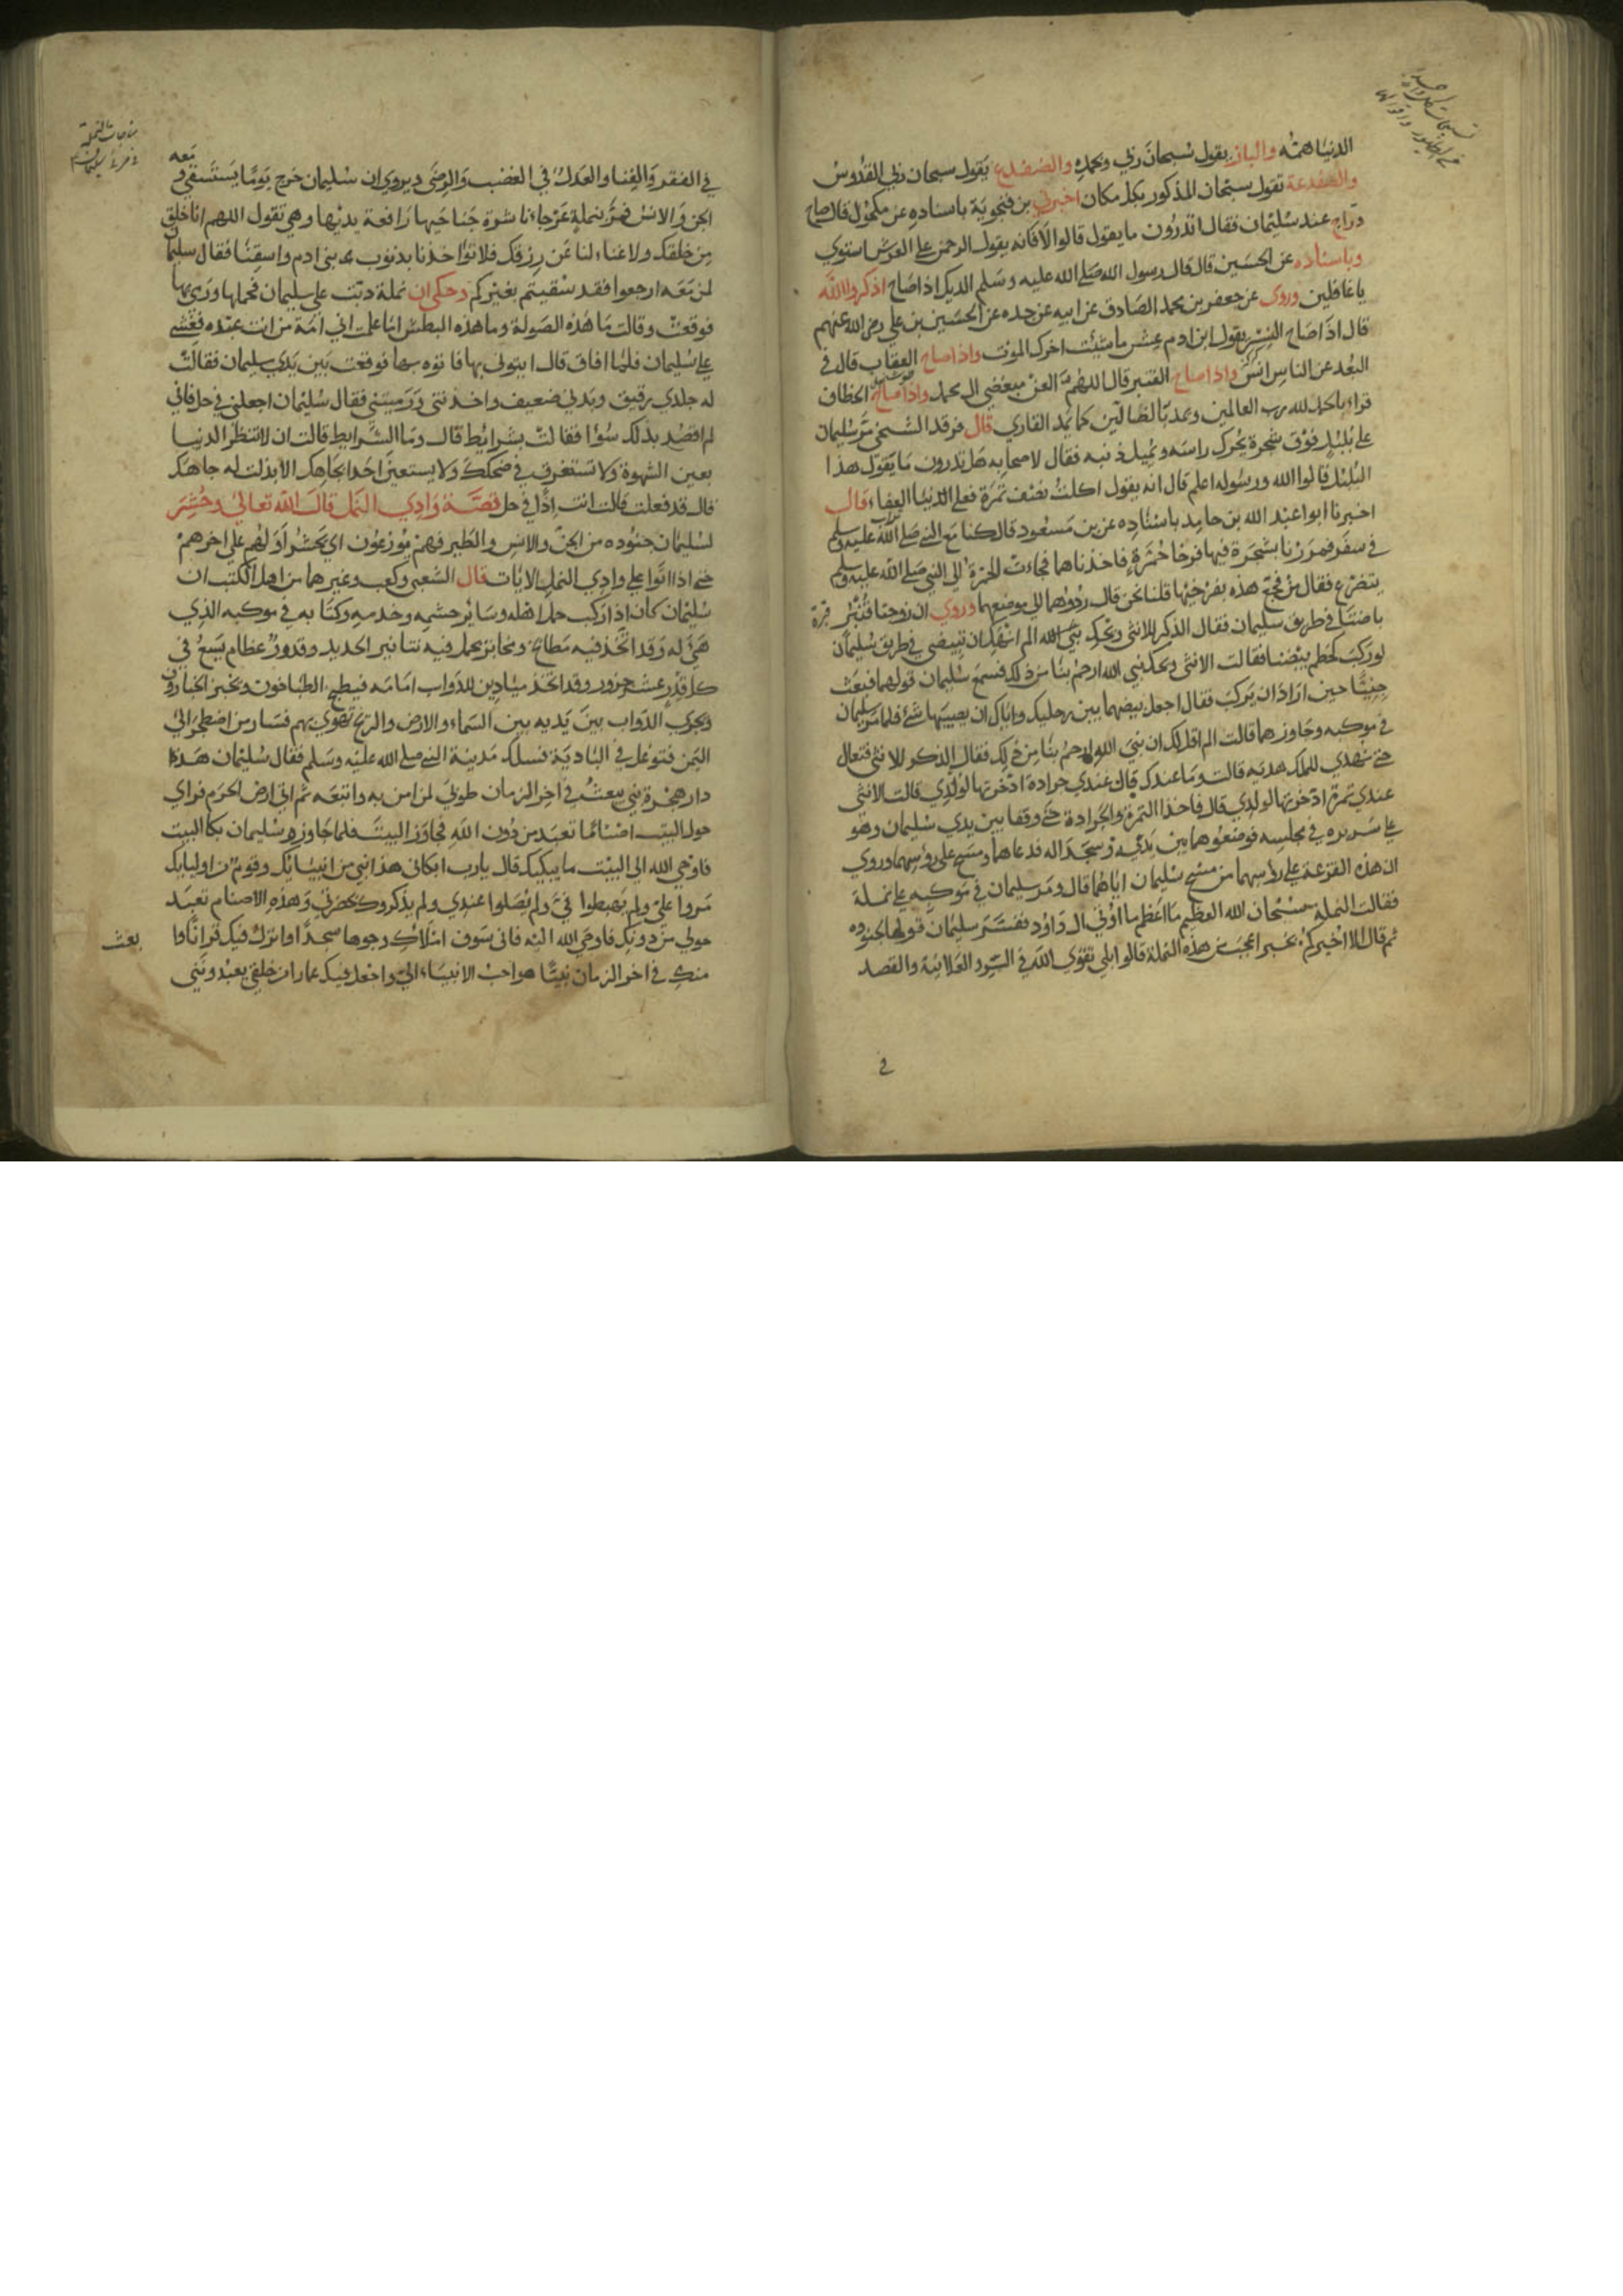 الدنيا همه والباز يقول سبحان ربي وبحمده والضفدع يقول سبحان ربي القدوس
والضفدعة تقول سبحان المذكور بكل مكان اخبرني بن فنجوية باسناده عن مكحول قال صاح
دراج عند سليمان فقال اتدرون ما يقول قالوا لا قال فانه يقول الرحمن على العرش استوي
وباسناده عن الحسين قال قال رسول الله صلى الله عليه وسلم الديك اذا صاح اذكروا الله
يا غافلين وروى عن جعفر بن محمد الصادق عن ابيه عن جده عن الحسين بن علي رضي الله عنهم
قال اذا صاح النسر يقول ابن ادم عش ما شئت اخرك الموت واذا صاح العقاب قال في
البعد عن الناس انس واذا صاح القنبر قال اللهم العن مبغضي ال محمد واذا صاح الخطاف
قراء الحمد لله رب العالمين ويمد بالضالين كما يمد القاري قال فرقد السنجي مر سليمان
على بلبل فوق شجرة يحرك راسه ويميل ذنبه فقال لاصحابه هل تدرون ما يقول هذا
البلبل قالوا الله ورسوله اعلم قال انه يقول اكلت نصف تمرة فعلى الدنيا العفاء قال
اخبرنا ابوا عبد الله بن حامد باسناده عن بن مسعود قال كنا مع النبي صلى الله عليه وسلم
في سفر فمررنا بشجرة فيها فرخا حمرة فاخذناهما فجاءت الحمرة الى النبي صلى الله عليه وسلم
تتضرع فقال من فجع هذه بفرخيها قلنا نحن قال ردوهما الى موضعهما وروي ان زوجا قنبر
باضتا في طريق سليمان فقال الذكر للانثى ويحك نبي الله الم انهك ان تبيضي في طريق سليمان
لو ركب لحطم بيضنا فقالت الانثى ويحك نبي الله ارحم بنا من ذلك فسمع سليمان قولهما فبعث
جنيا حين اراد ان يركب فقال اجعل بيضهما بين رجليك واياك ان يصيبها شئ فلما مر سليمان
في موكبه وجاوزهما قالت الم اقل لك ان نبي الله ارحم بنا من ذلك فقال الذكر للانثى فتعال
حتى نهدي للملك هديه قالت وما عندك قال عندي جرادة ادخرتها لولدي قالت الانثى
عندي تمرة ادخرتها لولدي قال فاخذا التمرة والجرادة حتى وقفا بين يدي سليمان وهو
على سريره في مجلسه فوضعوهما بين يديه وسجدا له فدعا هما ومسح على رؤسهما وروي
ان هذه القزعة على رؤسهما من مسح سليمان اياهما قال ومر سليمان في موكبه على نملة
فقالت النملة سبحان الله العظيم ما اعظم ما اوتي ال داود فسر سليمان قولها لجنوده
ثم قال الا اخبركم بخبر اعجب من هذه النملة قالوا بلى تقوى الله في السر والعلانية والقصد
في
في الفقر والغنا والعدل في الغضب والرضى ويروي ان سليمان خرج يوما يستسقي ومعه
الجن والانس فمر بنملة عرجاء ناشرة جناحيها رافعة يديها وهي تقول اللهم انا خلق
من خلقك ولا غناء لنا عن رزقك فلا تؤاخذنا بذنوب بني ادم واسقنا فقال سليمان
لمن معه ارجعوا فقد سقيتم بغيركم وحكي ان نملة دبت على سليمان فحملها ورمى بها
فوقعت وقالت ما هذه الصولة وما هذه البطش اما علمت اني امة من انت عبده فغشي
على سليمان فلما افاق قال ايتوني بها فاتوه بها فوقعت بين يدي سليمان فقالت
له جلدي رقيق وبدني ضعيف واخذتني ورميتني فقال سليمان اجعلني في حل فاني
لم اقصد بذلك سوا فقالت بشرايط قال وما الشرايط قالت ان لا تنظر الدنيا
بعين الشهوة ولا تستغرق في ضحكك ولا يستعين احدا بجاهك الا بذلت له جاهك
قال قد فعلت قالت انت اذا في حل قصة وادي النمل قال الله تعالى وحشر
لسليمان جنوده من الجن والانس والطير فهم يوزعون اي يحشر اولهم على اخرهم
حتى اذا اتوا على وادي النمل الايات قال الشعبي وكعب وغيرهما من اهل الكتب ان
سليمان كان اذا ركب حمل اهله وساير حشمه وخدمه وكتابه في موكبه الذي
هيئ له وقد اتخذ فيه مطابخ ومخابز يحمل فيه تنانير الحديد وقدور عظام يسع في
كل قدر عشر جزور وقد اتخذ ميادين للدواب امامه فيطبخ الطباخون ويخبز الخبازون
وتجري الدواب بين يديه بين السماء والارض والريح تهوي بهم فسار من اصطخر الى
اليمن فتوغل في البادية فسلك مدينة النبي صلى الله عليه وسلم فقال سليمان هذا
دار هجرة نبي يبعث في اخر الزمان طوبى لمن امن به واتبعه ثم اتى ارض الحرم فراي
حول البيت اصناما تعبد من دون الله فجاوز البيت فلما جاوزه سليمان بكا البيت
فاوحي الله الى البيت ما يبكيك قال يا رب ابكاني هذا نبي من انبيائك وقوم من اوليائك
مروا علي ولم يهبطوا في ولم يصلوا عندي ولم يذكروك بحضرتي وهذه الاصنام تعبد
حولي من دونك فاوحى الله اليه فاني سوف املاك وجوها سجدا وانزل فيك قرانا وابعث
منك في اخر الزمان نبيا هو احب الانبياء الي واجعل فيك عمارا من خلقي يعبدونني